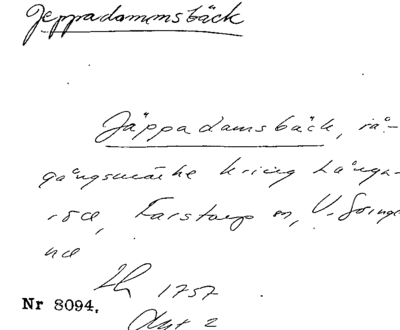 Jeppradammsbäck
Jäppadamsbäck, rå-
gångsmärke kring Långa-
röd, Farstorp sn, V. Göinge
hd
Lh 1757
Akt 2
Nr 8094.